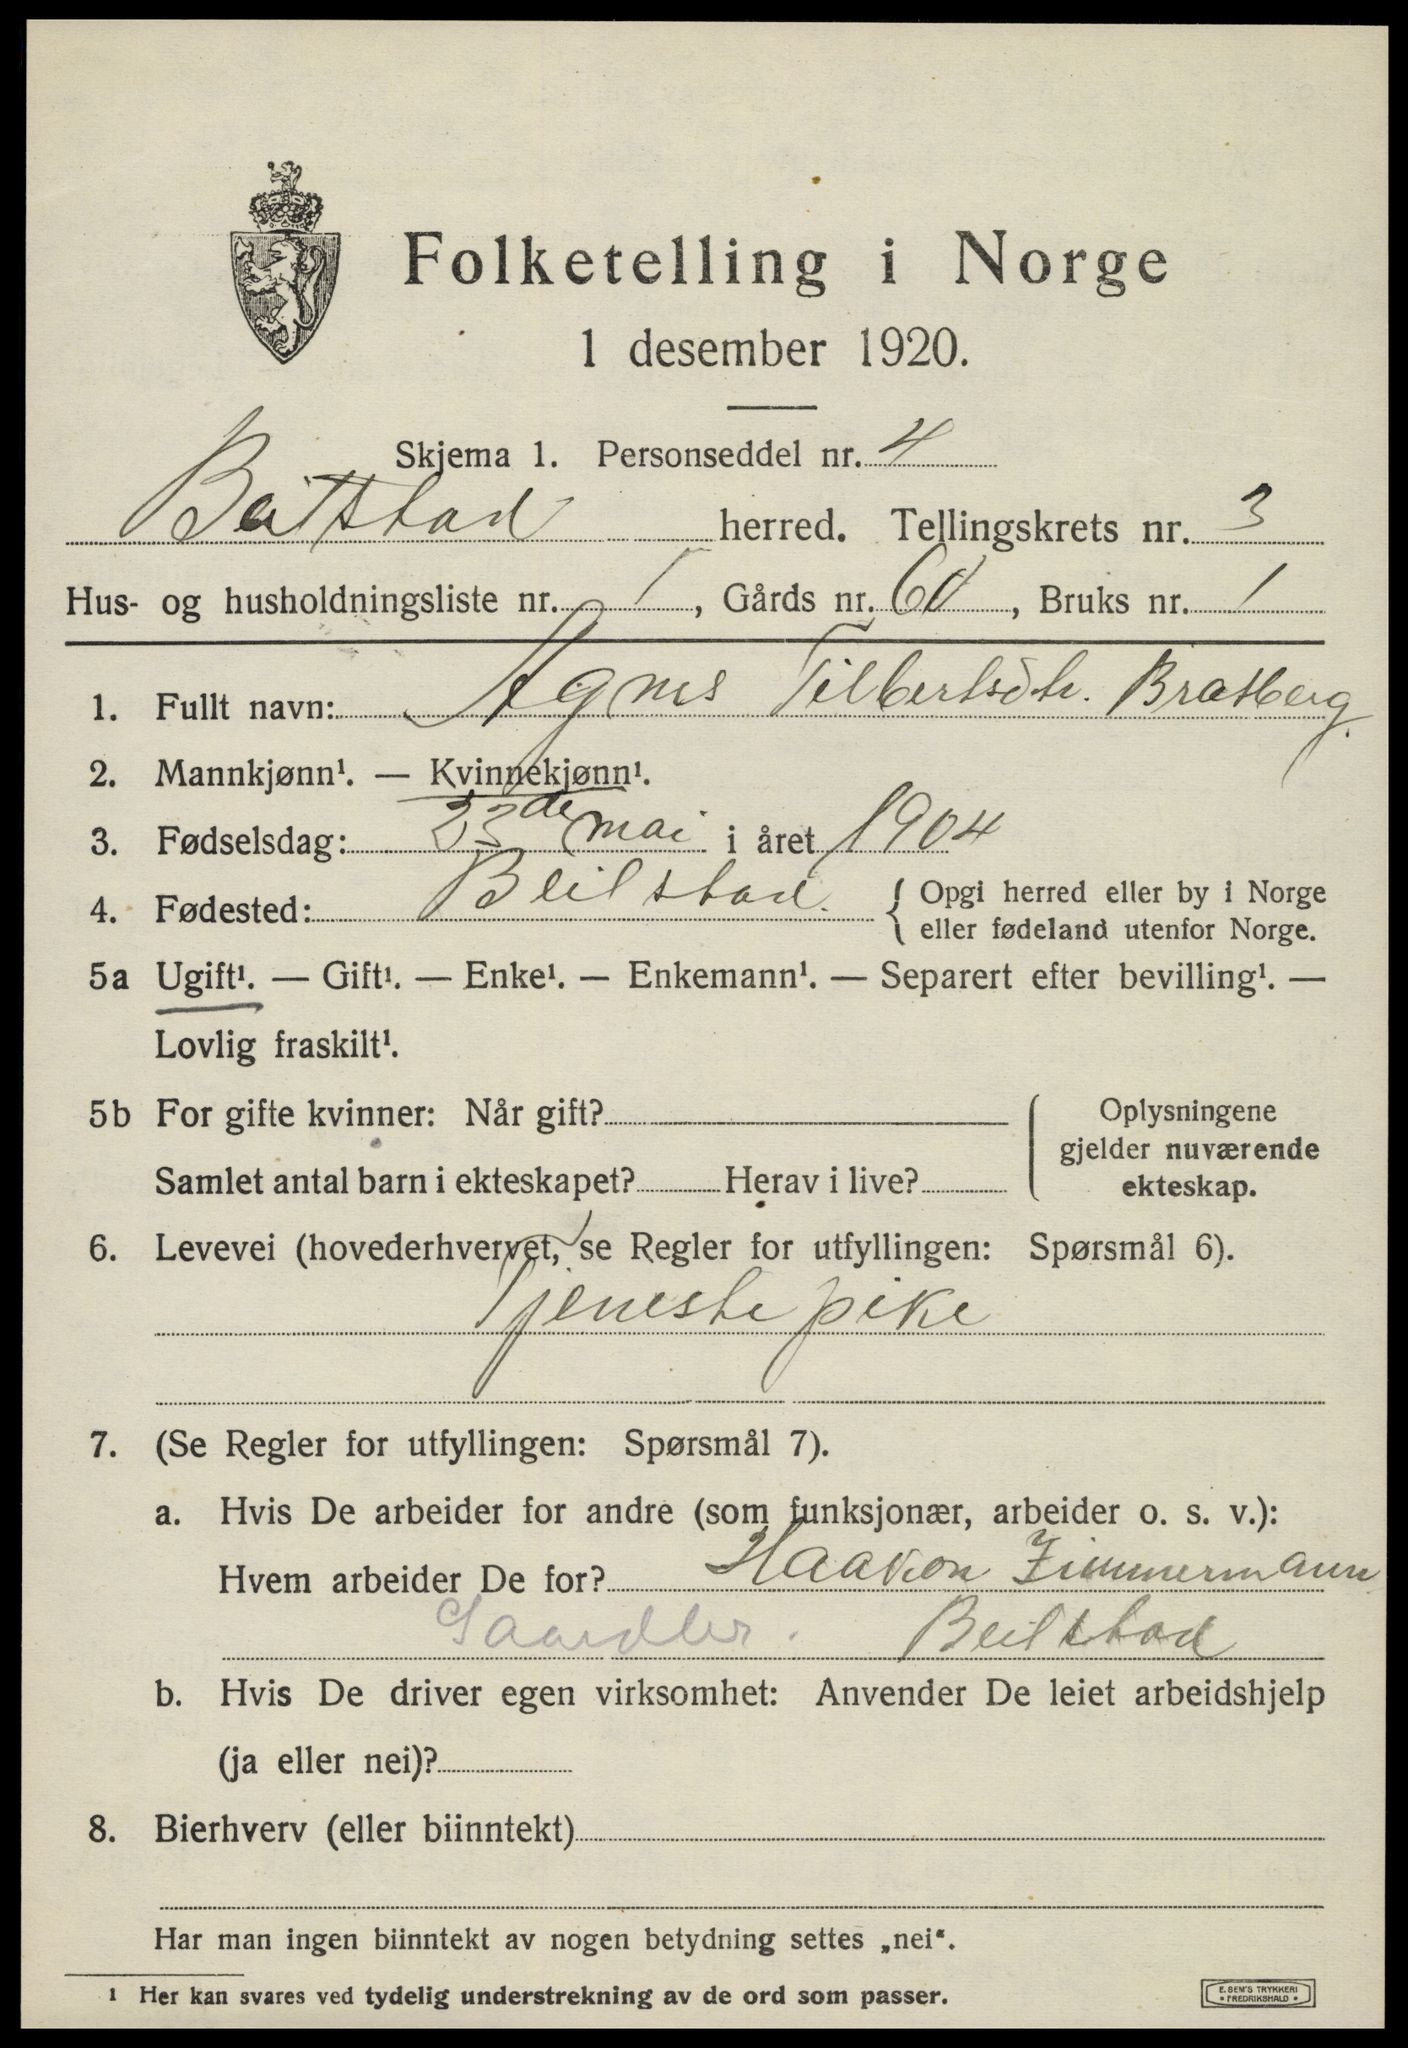 Folketelling i Norge
1 desember 1920.
Skjema 1. Personseddel nr. 4
Beitstad herred. Tellingskrets nr. 3
Hus- og husholdningsliste nr. 1, Gårds nr. 61, Bruks nr. 1
1. Fullt navn: Agnes Tilbertsdtr. Bratberg.
2. Mannkjønn¹. — Kvinnekjønn¹.
3. Fødselsdag: 23de mai i året 1904
4. Fødested: Beitstad. { Opgi herred eller by i Norge
eller fødeland utenfor Norge.
5a Ugift¹. — Gift¹. — Enke¹. — Enkemann¹. — Separert efter bevilling¹. —
Lovlig fraskilt¹.
5b For gifte kvinner: Når gift? { Oplysningene
gjelder nuværende
Samlet antal barn i ekteskapet? Herav i live? ekteskap.
6. Levevei (hovederhvervet, se Regler for utfyllingen: Spørsmål 6).
Tjenestepike
7. (Se Regler for utfyllingen: Spørsmål 7).
a. Hvis De arbeider for andre (som funksjonær, arbeider o. s. v.):
Hvem arbeider De for? Haakon Zimmermann
Gaardbr. Beitstad
b. Hvis De driver egen virksomhet: Anvender De leiet arbeidshjelp
(ja eller nei)?
8. Bierhverv (eller biinntekt)
Har man ingen biinntekt av nogen betydning settes „nei“.
1 Her kan svares ved tydelig understrekning av de ord som passer.
E. SEM'S TRYKKERI
• FREDRIKSHALD •